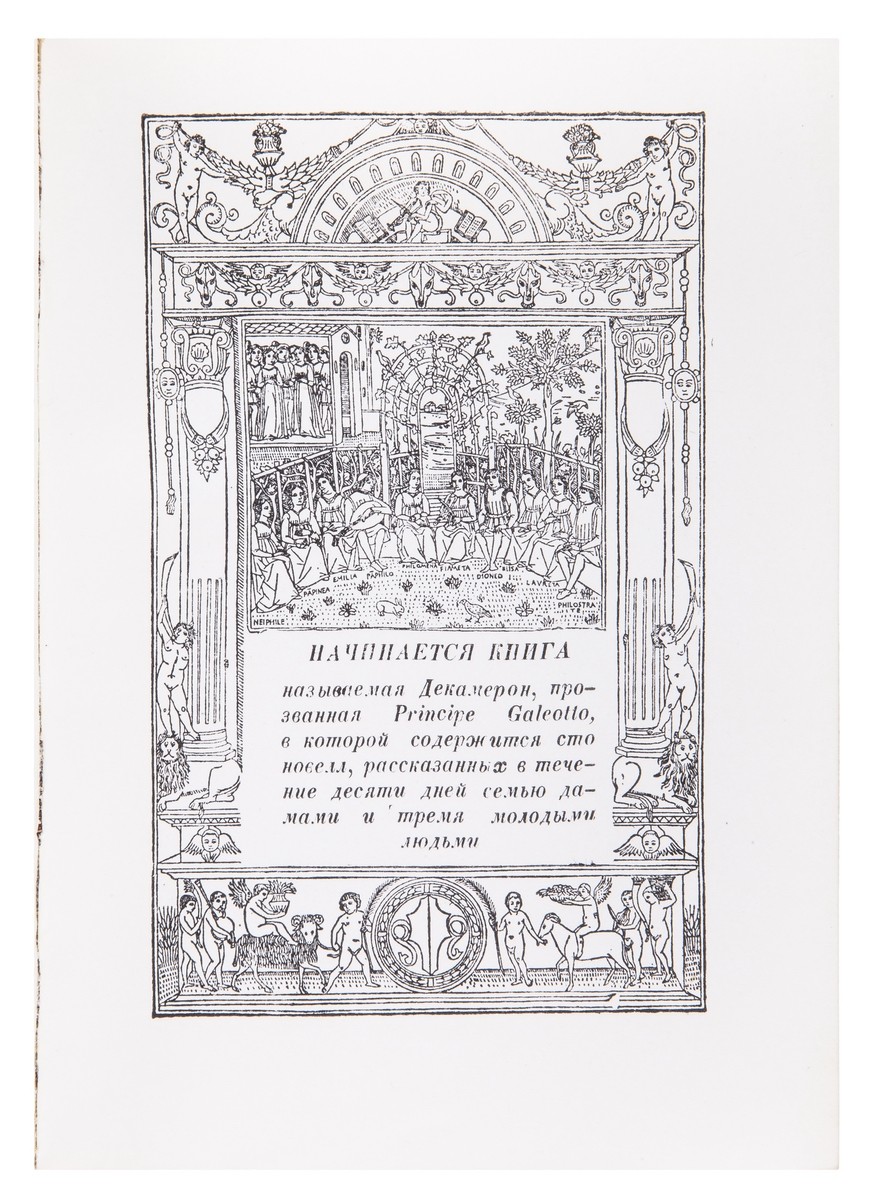 NEIPHILE
PĀPINEA
EMILIA
PĀPHILO
PHILOMENA
FIAMETA
DIONEO
LAVRETA
PHILOSTRA
TE
НАЧИНАЕТСЯ КНИГА
называемая Декамерон, про—
званная Principe Galeotto,
в которой содержится сто
новелл, рассказанных в тече—
ние десяти дней семью да—
мами и тремя молодыми
людьми